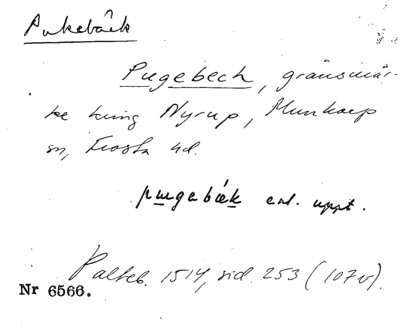 Pukebäck
Pugebech, gränsmär-
ke kring Nyrup, Munkarp
sn, Frosta hd.
pugabæk enl. uppt.
Palteb. 1514, sid. 253 (107v).
Nr 6566.